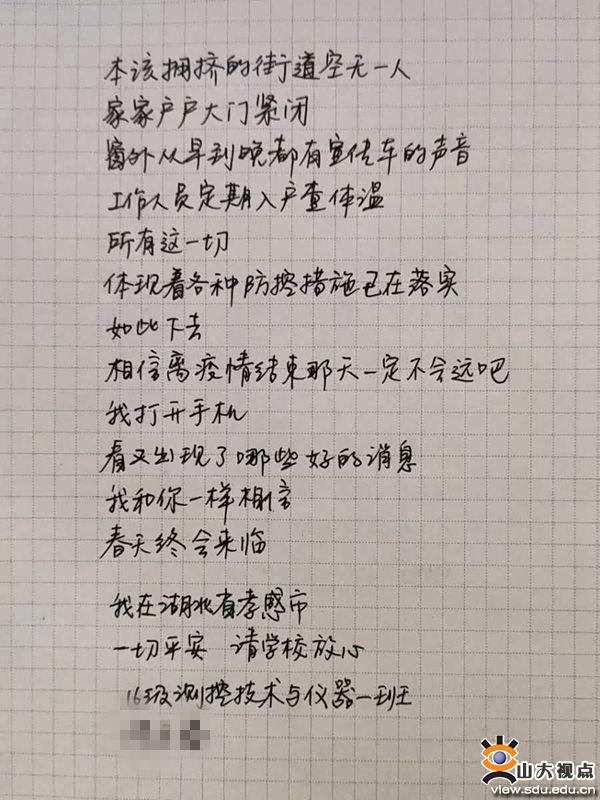 本该拥挤的街道空无一人
家家户户大门紧闭
窗外从早到晚都有宣传车的声音
工作人员定期入户查体温
所有这一切
体现着各种防控措施已在落实
如此下去
相信离疫情结束那天一定不会远吧
我打开手机
看又出现了哪些好的消息
我和你一样相信
春天终会来临
我在湖北省孝感市
一切平安 请学校放心
16级测控技术与仪器一班
山大视点
view.sdu.edu.cn